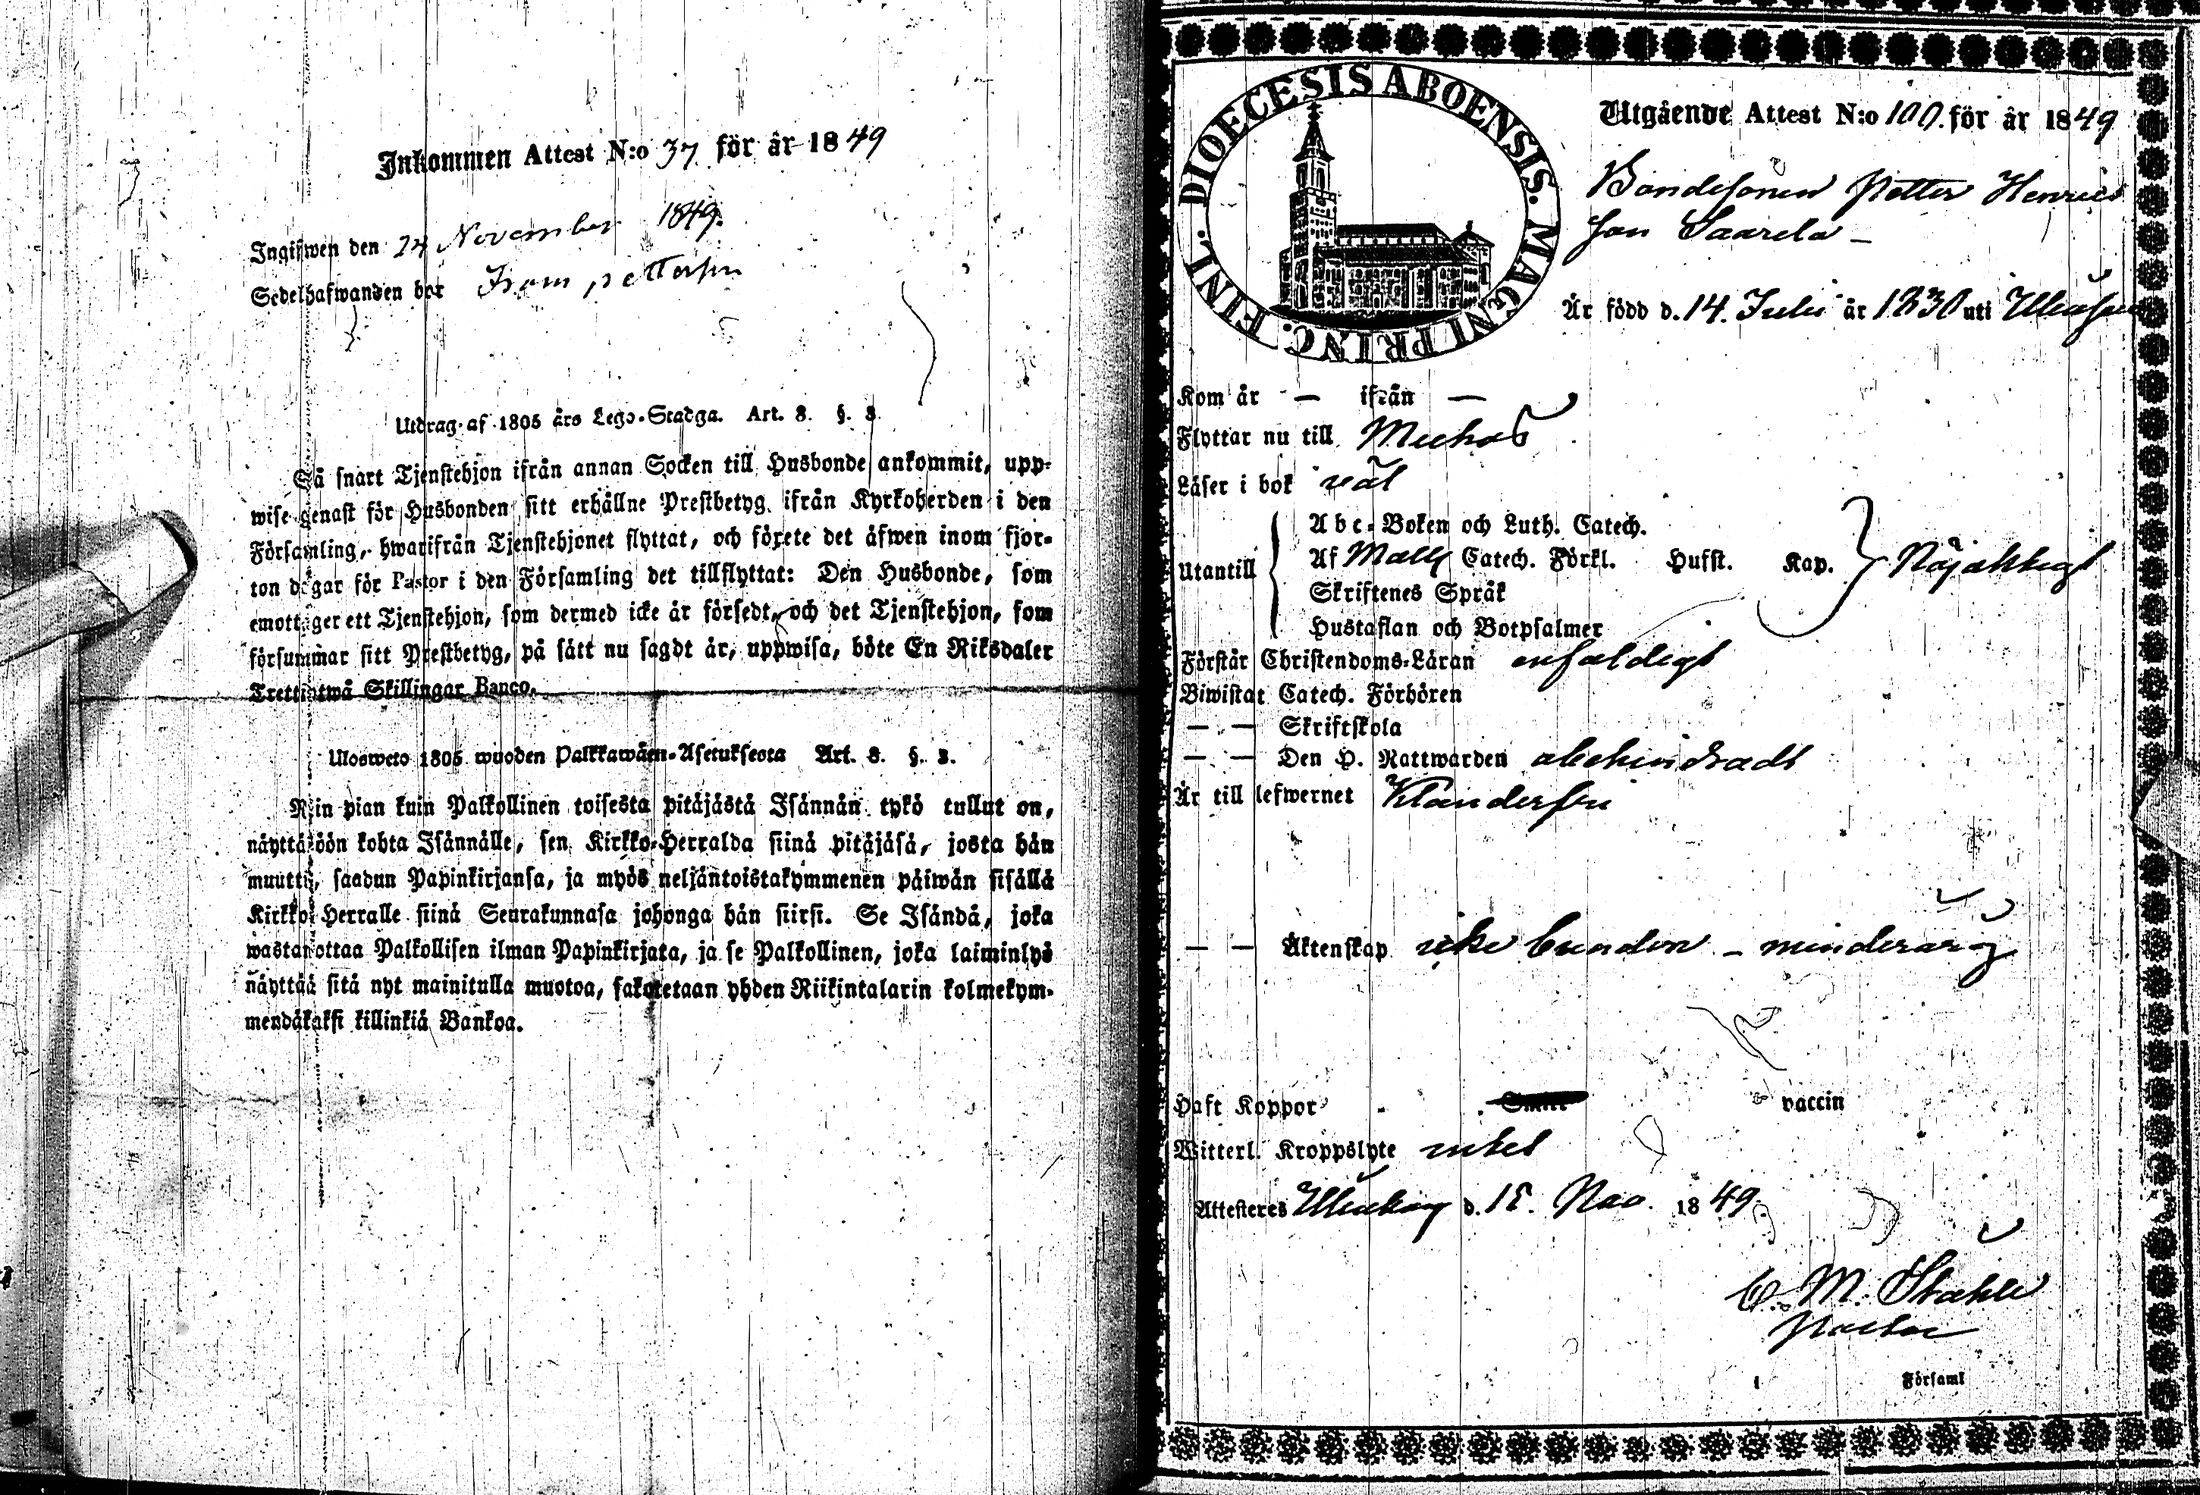 Inkommen Attest N:o 37 för år 1849
Ingifwen den 24 November 1849.
Sedelhafwanden bor
Utdrag af 1805 års Lego-Stadga. Art. 8. §. 3.
Så snart Tjenstehjon ifrån annan Socken till Husbonde ankommit, upp-
wise genast för Husbonden sitt erhållne Prestbetyg ifrån Kyrkoherden i den
Församling, hwarifrån Tjenstehjonet flyttat, och förete det äfwen inom fjor-
ton dagar för Pastor i den Församling det tillflyttat: Den Husbonde, som
emottager ett Tjenstehjon, som dermed icke är försedt, och det Tjenstehjon, som
försummar sitt Prestbetyg, på sätt nu sagdt är, uppwisa, böte En Riksdaler
Trettiotwå Skillingar Banco.
Ulosweto 1805 wuoden Palkkawäen-Asetuksesta Art. 8. §. 3.
Niin pian kuin Palkollinen toisesta pitäjästä Isännän tykö tullut on,
näyttäköön kohta Isännälle, sen Kirkko-Herralda siinä pitäjäsä, josta hän
muutti, saadun Papinkirjansa, ja myös neljäntoistakymmenen päiwän sisällä
Kirkko-Herralle siinä Seurakunnasa johonga hän siirsi. Se Isändä, joka
wastanottaa Palkollisen ilman Papinkirjata, ja se Palkollinen, joka laiminlyö
näyttää sitä nyt mainitulla muotoa, sakotetaan yhden Riikintalarin kolmekym-
mendäkaksi killinkiä Bankoa.
DIOECESIS ABOENSIS. MAGNI PRINC. FINL.
Utgående Attest N:o 100. för år 1849
Bondesonen Petter Henrics
son Saarela –
Är född d. 14. Julii år 1830 uti
Kom år — ifrån —
Flyttar nu till
Läser i bok väl
Utantill
Abc-Boken och Luth. Catech.
Af Catech. Förkl. Husst. Kap. Nöjaktigt
Skriftenes Språk
Hustaflan och Botpsalmer
Förstår Christendoms-Läran enfaldigt
Biwistat Catech. Förhören
— — Skriftskola
— — Den H. Nattwarden obehindradt
Är till lefwernet Klanderfri
— — Äktenskap icke bunden – minderårig
Haft Koppor vaccin
Witterl. Kroppslyte intet
Attesteres d. 15. Nov. 1849
C. M. Stahle
Pastor
Församl